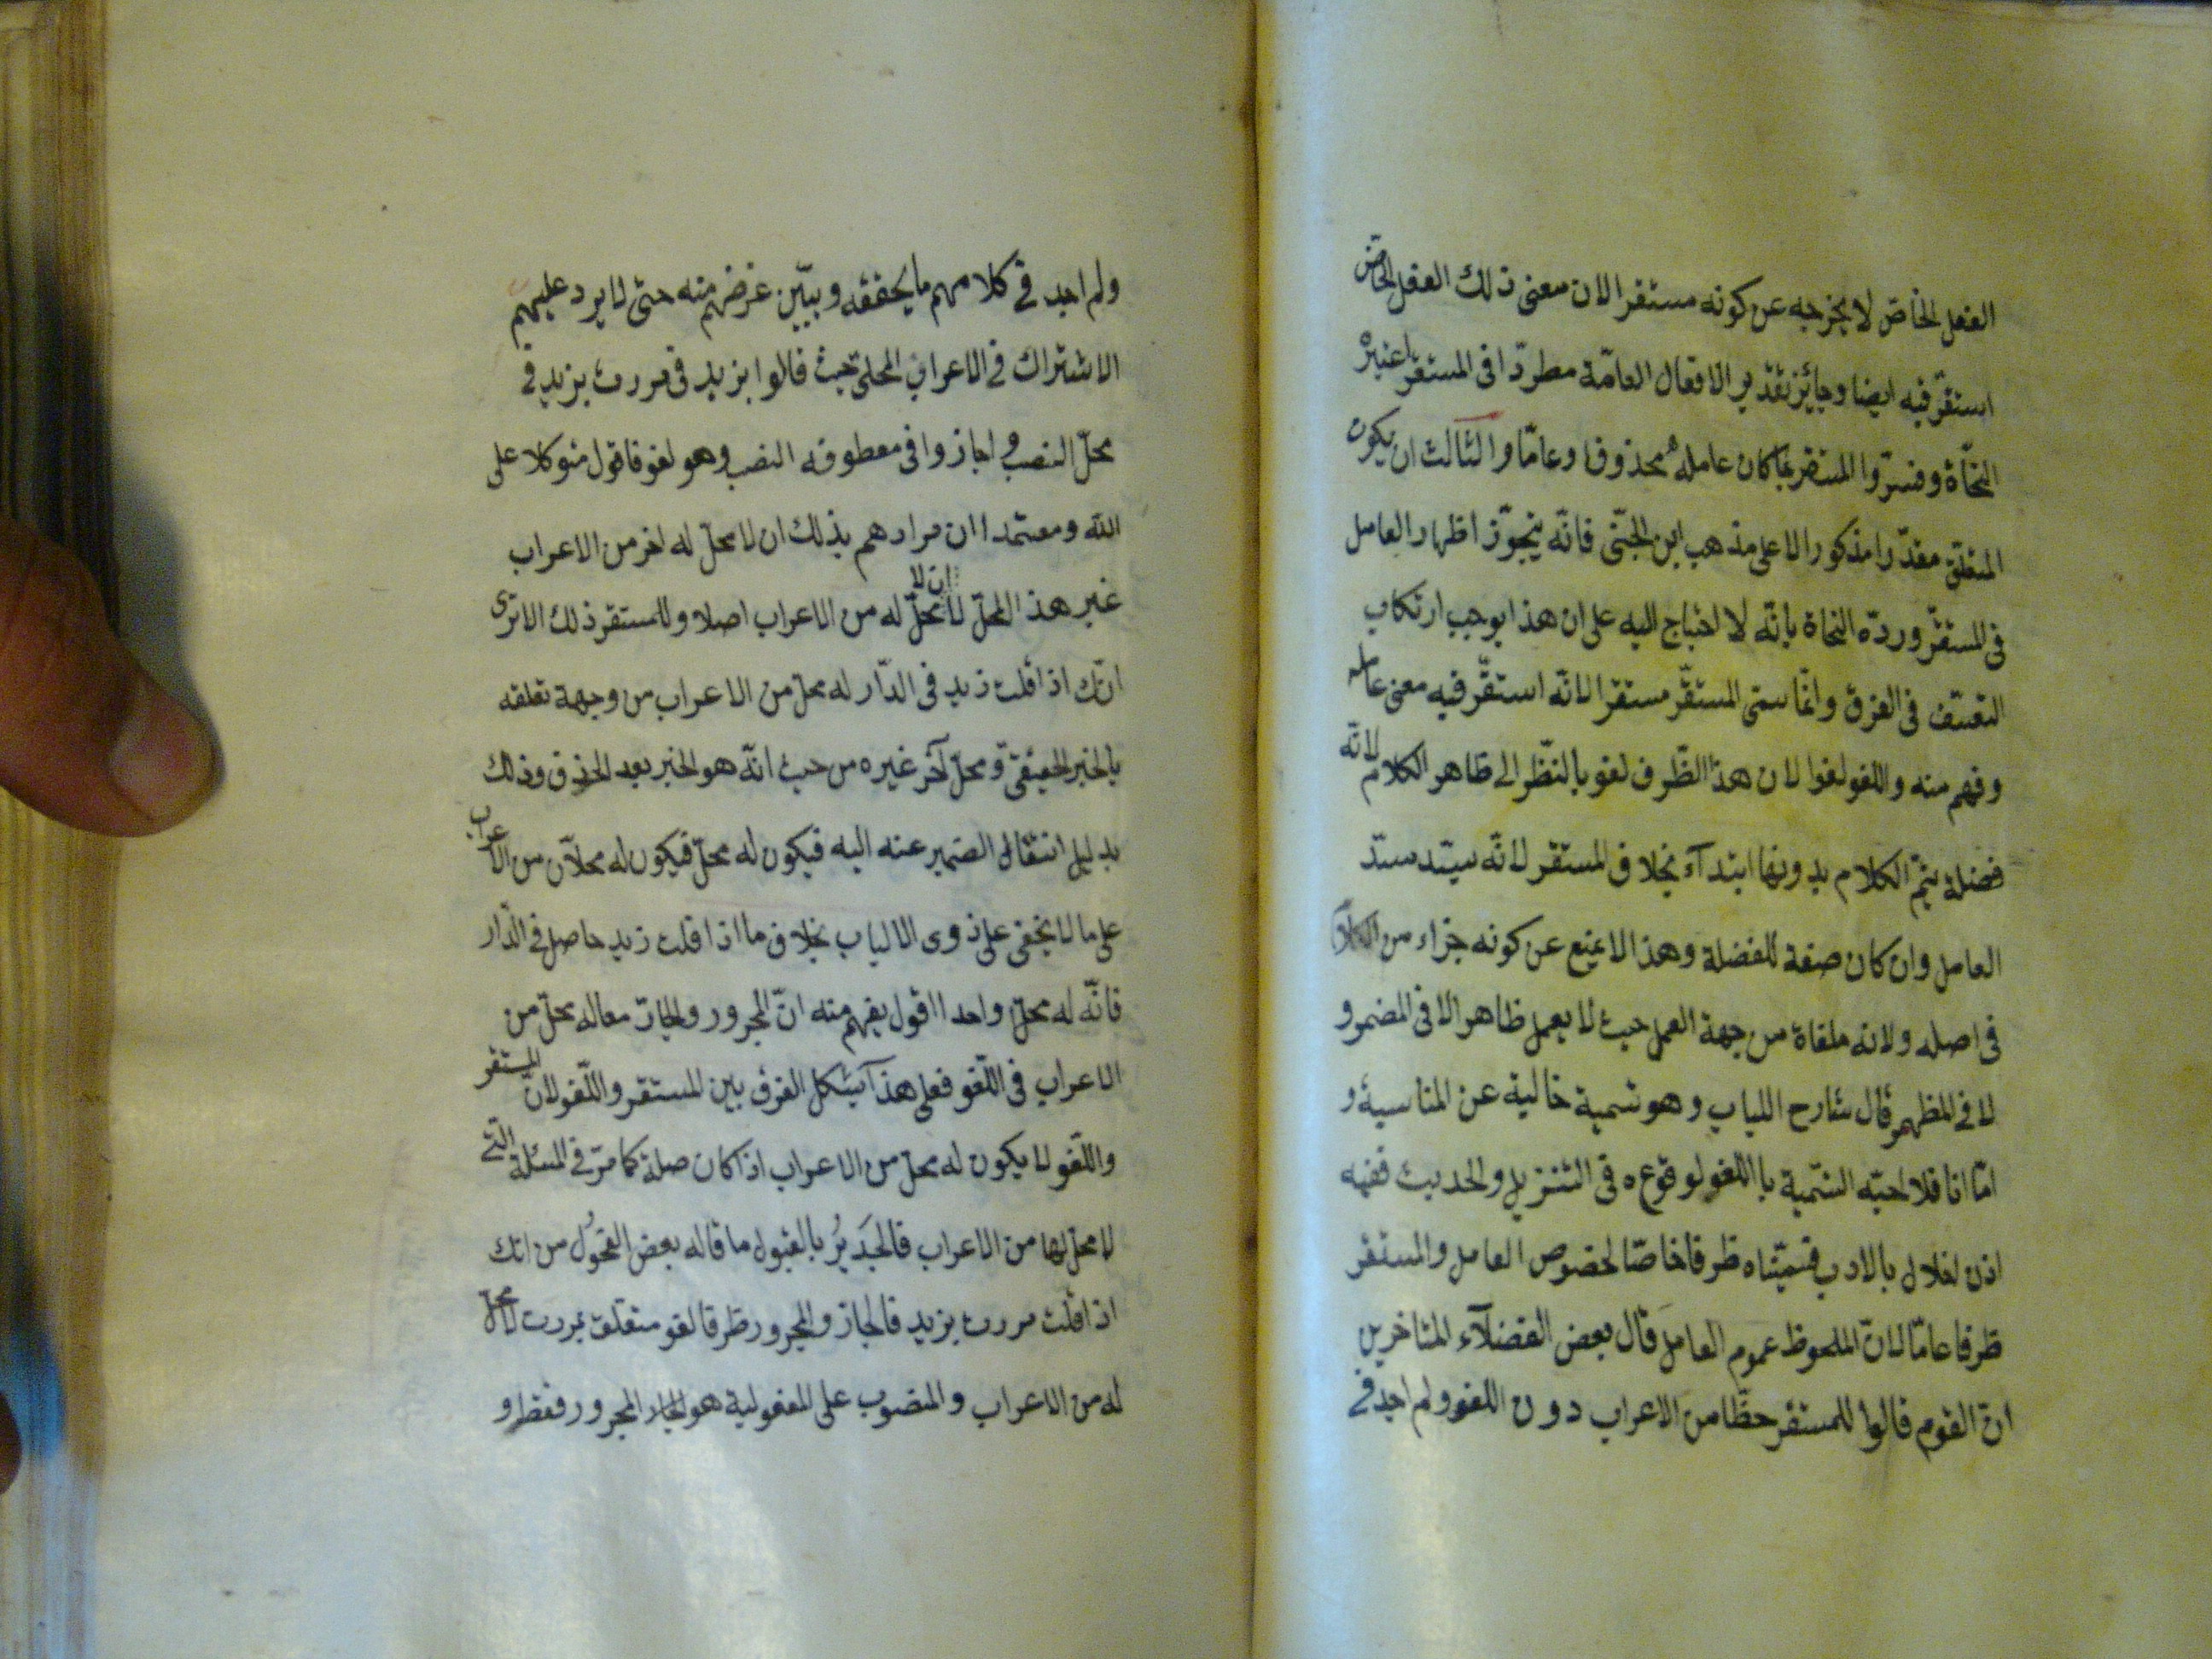 الفعل الخاصّ لا يخرجه عن كونه مستقرا لان معنى ذلك الفعل الخاص
استقرّ فيه ايضا وجائز تقدير الافعال العامّة مطردّا فى المستقر اعتبره
النحّاة وفسّروا المستقر بما كان عامله محذوفا وعامّا والثالث ان يكون
المتعلّق مقدّرا مذكورا لا على مذهب ابن الجنّى فانّه يجوّز اظهار العامل
فى المستقرّ وردّه النحاة بانّه لا احتياج اليه على ان هذا يوجب ارتكاب
التعسّف فى الفرق وانّما سمّى المستقرّ مستقرا لانّه استقرّ فيه معنى عامله
وفهم منه واللغو لغوا لان هذا الظّرف لغو بالنظّر الى ظاهر الكلام لانّه
فضلة يتمّ الكلام بدونها ابتدآء بخلاف المستقر لانّه سيتد ستدّ
العامل وان كان صفة للفضلة وهذا لا يمنع عن كونه جزاء من الكلام
فى اصله ولانه ملغاة من جهة العمل حيث لا يعمل ظاهرا لا فى المضمر و
لا فى المظهر قال شارح اللباب وهو تسمية خالية عن المناسبة و
امّا انا فلا احبّه التسّمية باللغو لوقوعه فى التنزيل والحديث ففيه
اذن اخلال بالادب فسمّيناه ظرفا خاصّا لخصوص العامل والمستقر
ظرفا عامّا لانّ الملحوظ عموم العامل قال بعض الفضلآء المتاخرين
انّ القوم قالوا للمستقر حظّا من الاعراب دون اللغو ولم اجد فى
ولم اجد فى كلامهم ما يحققه ويبيّن غرضهم منه حتى لا يرد عليهم
الاشتراك فى الاعراب المحلى حيث قالوا بزيد فى مررت بزيد فى
محلّ النصب واجازوا فى معطوفه النصب وهو لغو فاقول متوكلا على
الله ومعتمدا ان مرادهم بذلك ان لا محلّ له اخر من الاعراب
غير هذ المحلّ لا ان لا محلّ له من الاعراب اصلا وللمستقر ذلك الا ترى
انّك اذا قلت زيد فى الدّار له محلّ من الاعراب من وجهة تعلقه
بالخبر الحقيقىّ ومحلّ آخر غيره من حيث انّه هو الخبر بعد الحذف وذلك
بدليل انتقال الضمير عنه اليه فيكون له محلّ فيكون له محلآن من الاعراب
على ما لا يخفى على ذوى الالباب بخلاف ما اذا قلت زيد حاصل فى الدّار
فانّه له محلّ واحدا اقول يفهم منه انّ المجرور والجارّ معا له محلّ من
الاعراب فى اللّغو فعلى هذا يشكل الفرق بين المستقر واللّغو لانّ المستقر
واللّغو لا يكون له محلّ من الاعراب اذا كان صلة كما مرّ فى المسئلة التى
لا محلّ لها من الاعراب فالجَديرُ بالقبول ما قاله بعض الفحُول من انك
اذا قلت مررت بزيد فالجارّ والمجرور ظرفا لغو متعلق بمررت لا محلّ
له من الاعراب والمنصوب على المفعولية هو المجرور فقط و